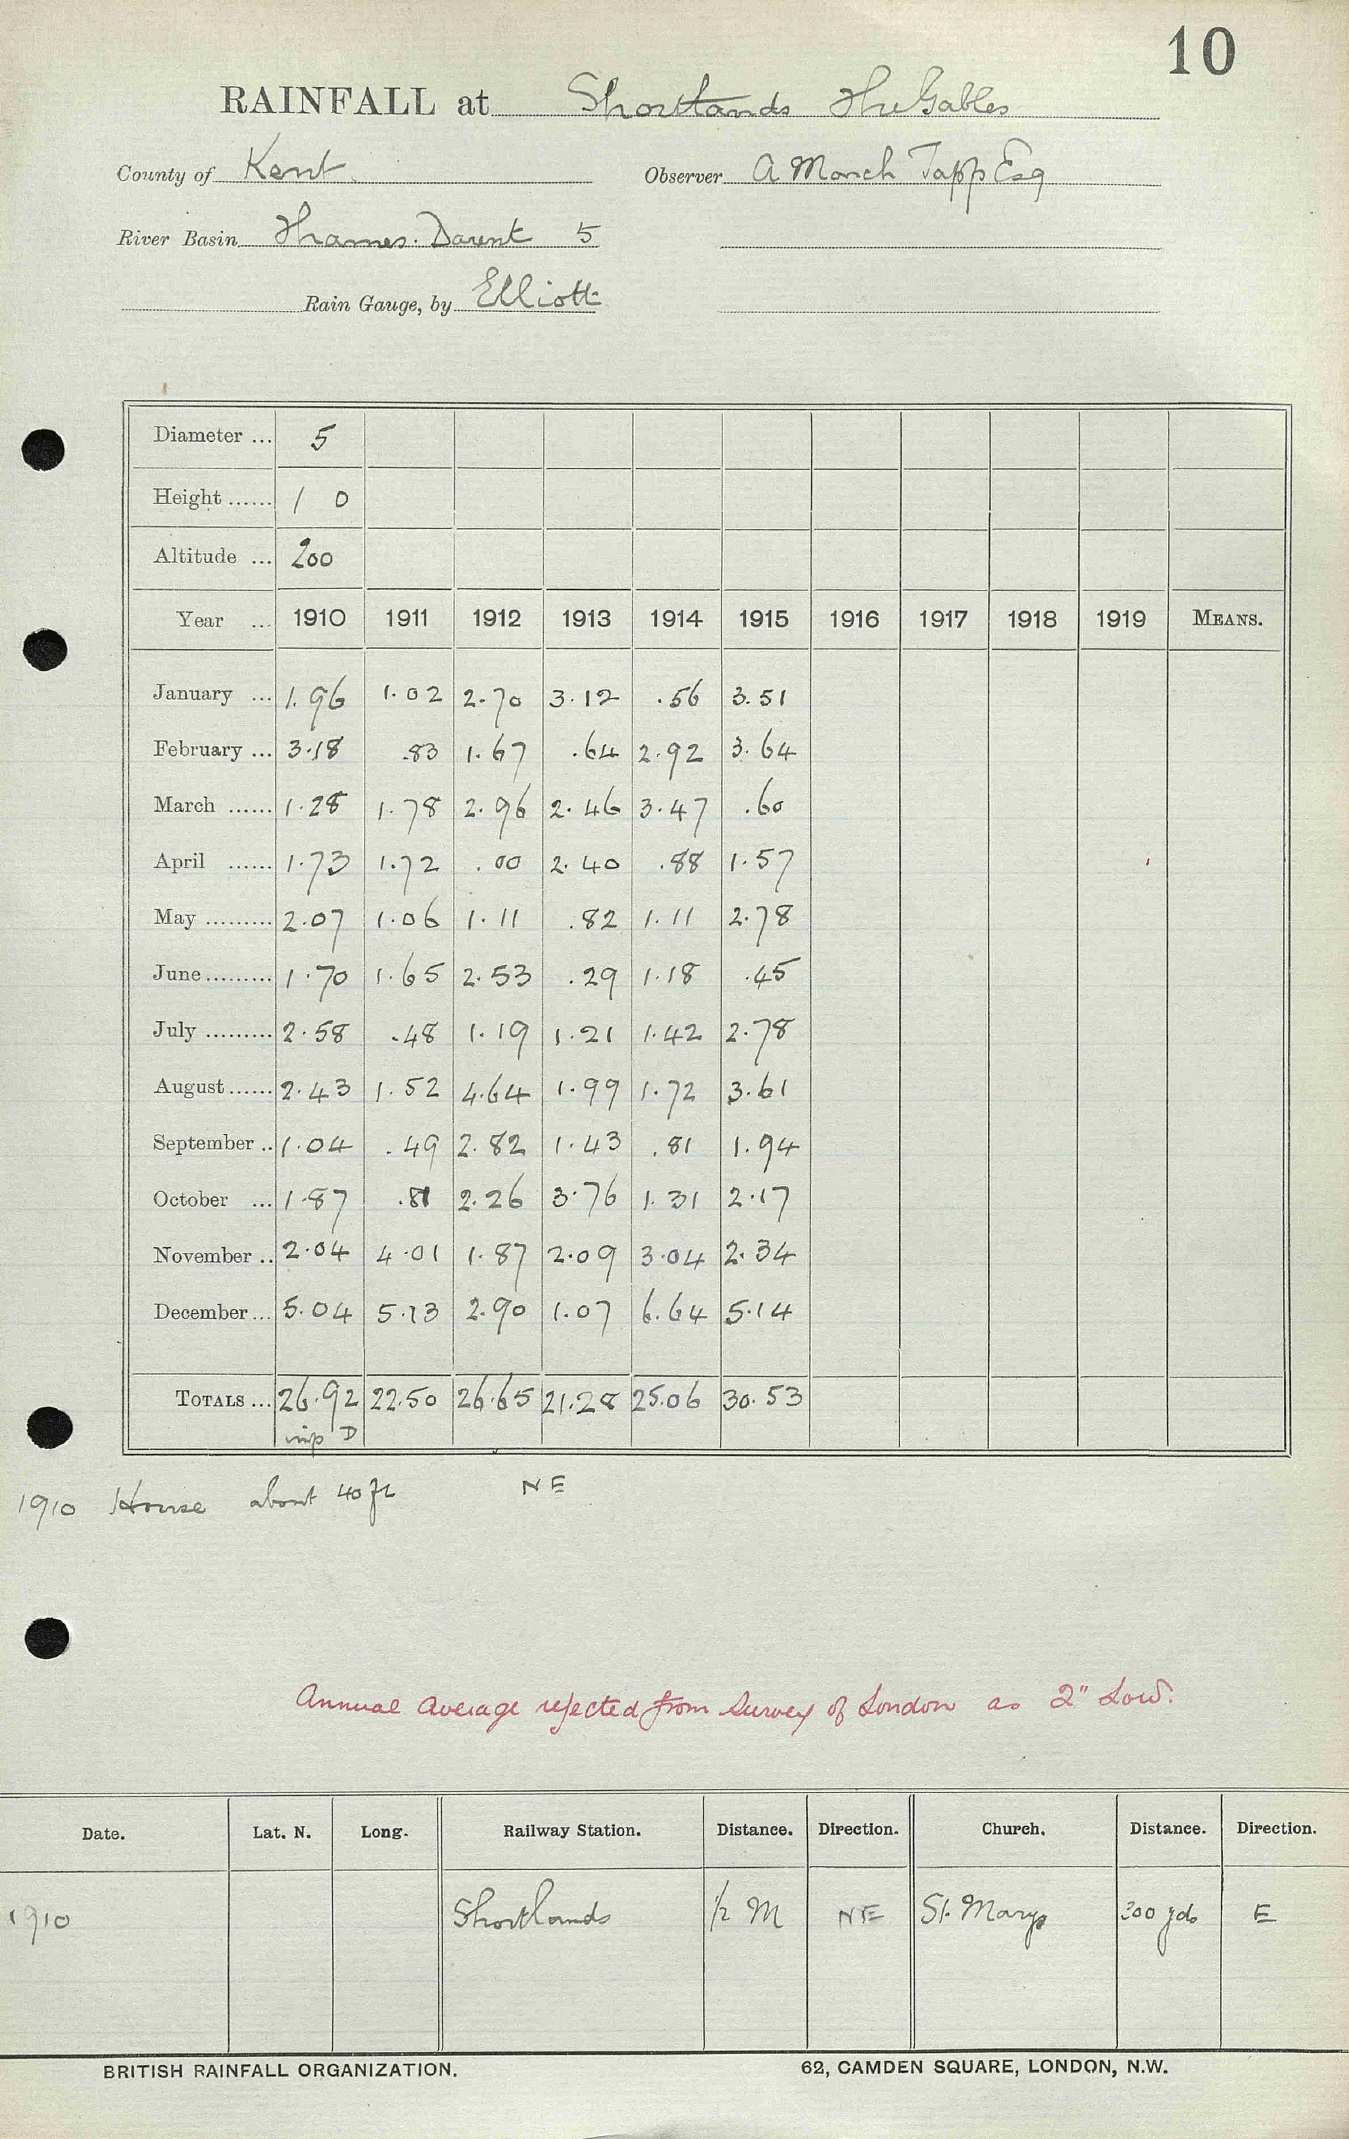 10
RAINFALL at Shortlands The Gables
County of Kent Observer A March Tapp Esq
River Basin Thames. Darent 5
Rain Gauge, by Elliott
Diameter ... 5
Height ...... 1 0
Altitude ... 200
Year ... 1910 1911 1912 1913 1914 1915 1916 1917 1918 1919 MEANS.
January ... 1.96 1.02 2.70 3.12 .56 3.51
February ... 3.18 .83 1.67 .64 2.92 3.64
March ...... 1.28 1.78 2.96 2.46 3.47 .60
April ...... 1.73 1.72 .00 2.40 .88 1.57
May ......... 2.07 1.06 1.11 .82 1.11 2.78
June ......... 1.70 1.65 2.53 .29 1.18 .45
July ......... 2.58 .48 1.19 1.21 1.42 2.78
August ...... 2.43 1.52 4.64 1.99 1.72 3.61
September .. 1.04 .49 2.82 1.43 .81 1.94
October ... 1.87 .81 2.26 3.76 1.31 2.17
November .. 2.04 4.01 1.87 2.09 3.04 2.34
December ... 5.04 5.13 2.90 1.07 6.64 5.14
TOTALS ... 26.92 22.50 26.65 21.28 25.06 30.53
imp D
1910 House about 40 ft NE
Annual average rejected from Survey of London as 2" Low.
Date. Lat. N. Long. Railway Station. Distance. Direction. Church. Distance. Direction.
1910 Shortlands 1/2 M NE St. Marys 300 yds E
BRITISH RAINFALL ORGANIZATION. 62, CAMDEN SQUARE, LONDON, N.W.